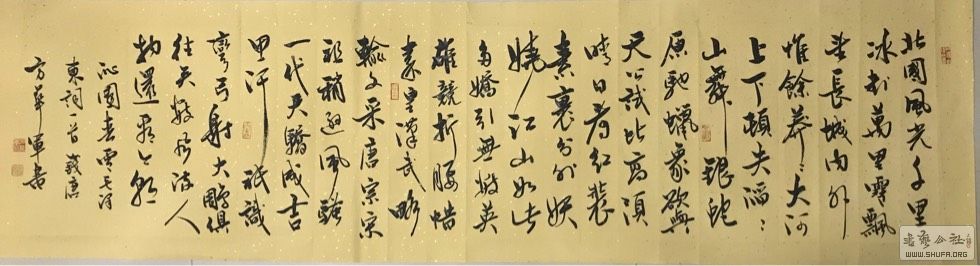 北國風光千里
冰封萬里雪飄
望長城內外
惟餘莽〻大河
上下頓失滔〻
山舞銀蛇
原馳蠟象欲與
天公試比高須
晴日看紅裝
素裹分外妖
嬈江山如此
多嬌引無數英
雄競折腰惜
秦皇漢武略
輸文采唐宗宋
祖稍遜風騷
一代天驕成吉
思汗祇識
彎弓射大雕俱
往矣數風流人
物還看今朝
沁園春雪毛澤
東詞一首歲
軍書
WWW.SHUFA.ORG